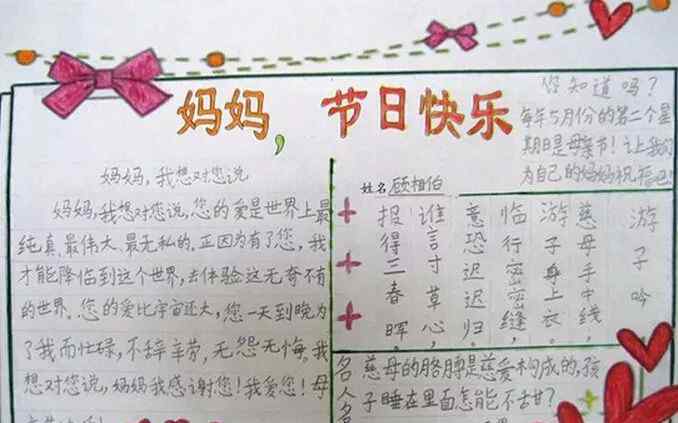 妈妈，节日快乐
妈妈，我想对您说
妈妈，我想对您说，您的爱是世界上最
纯真、最伟大、最无私的。正因为有了您，我
才能降临到这个世界，去体验这无奇不有
的世界。您的爱比宇宙还大，您一天到晚为
了我而忙碌，不辞辛劳，无怨无悔。我
想对您说，妈妈我感谢您！我爱您！母
你知道吗？
每年5月份的第二个星
期日是母亲节！让我们
为自己的妈妈祝福吧！
姓名 顾相伯
游子吟
慈母手中线，
游子身上衣。
临行密密缝，
意恐迟迟归。
谁言寸草心，
报得三春晖
名人名
慈母的胳膊是慈爱构成的，孩
子睡在里面怎能不甜？